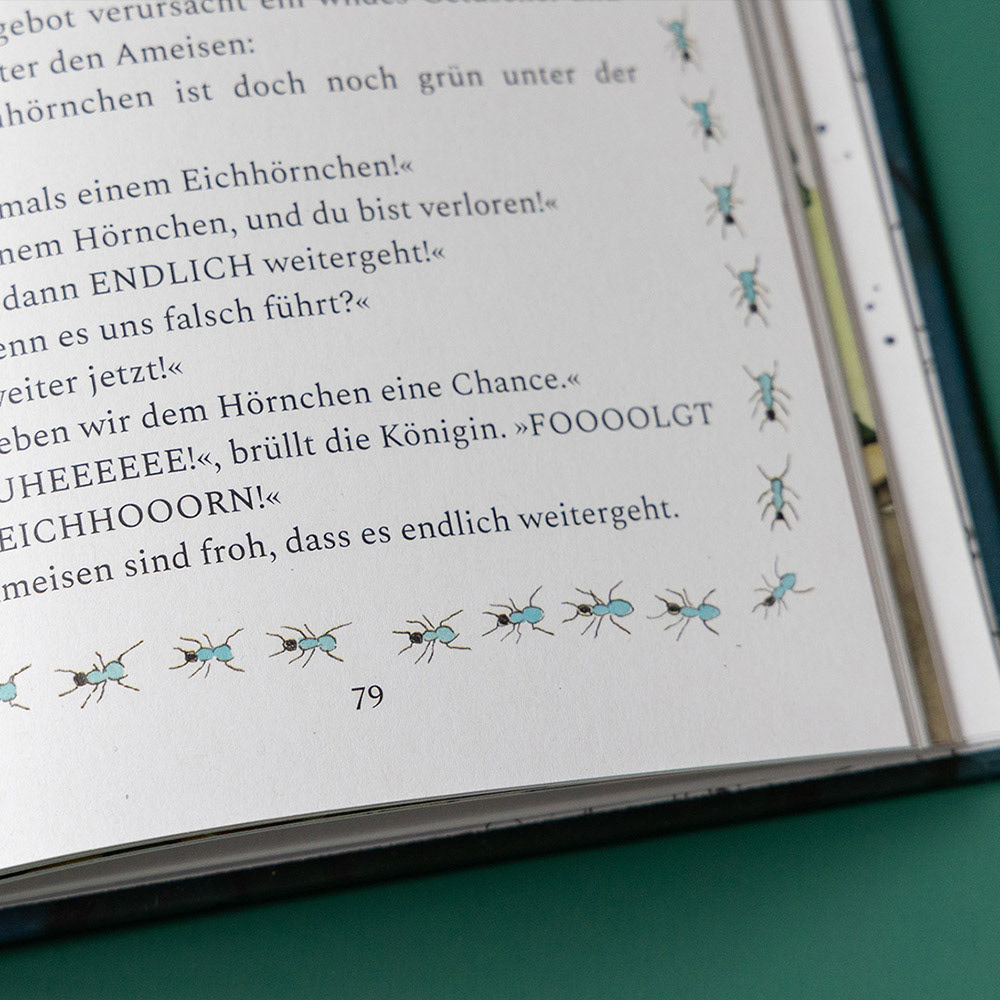 verursacht ein wildes
den Ameisen:
ist doch noch grün unter der
einem Eichhörnchen!«
Hörnchen, und du bist verloren!«
dann ENDLICH weitergeht!«
es uns falsch führt?«
jetzt!«
wir dem Hörnchen eine Chance.«
brüllt die Königin. »FOOOOLGT
EICHHOOORN!«
sind froh, dass es endlich weitergeht.
79